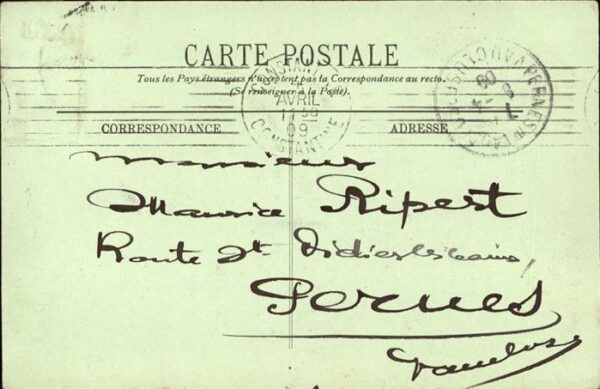 CARTE POSTALE
Tous les Pays étrangers n'acceptent pas la Correspondance au recto.
(Se renseigner à la Poste).
CONSTANTINE
AVRIL
09
CONSTANTINE
CORRESPONDANCE
ADRESSE
PERNES
VAUCLUSE
Monsieur
Maurice Ripert
Route St Didier les bains,
Pernes
Vaucluse